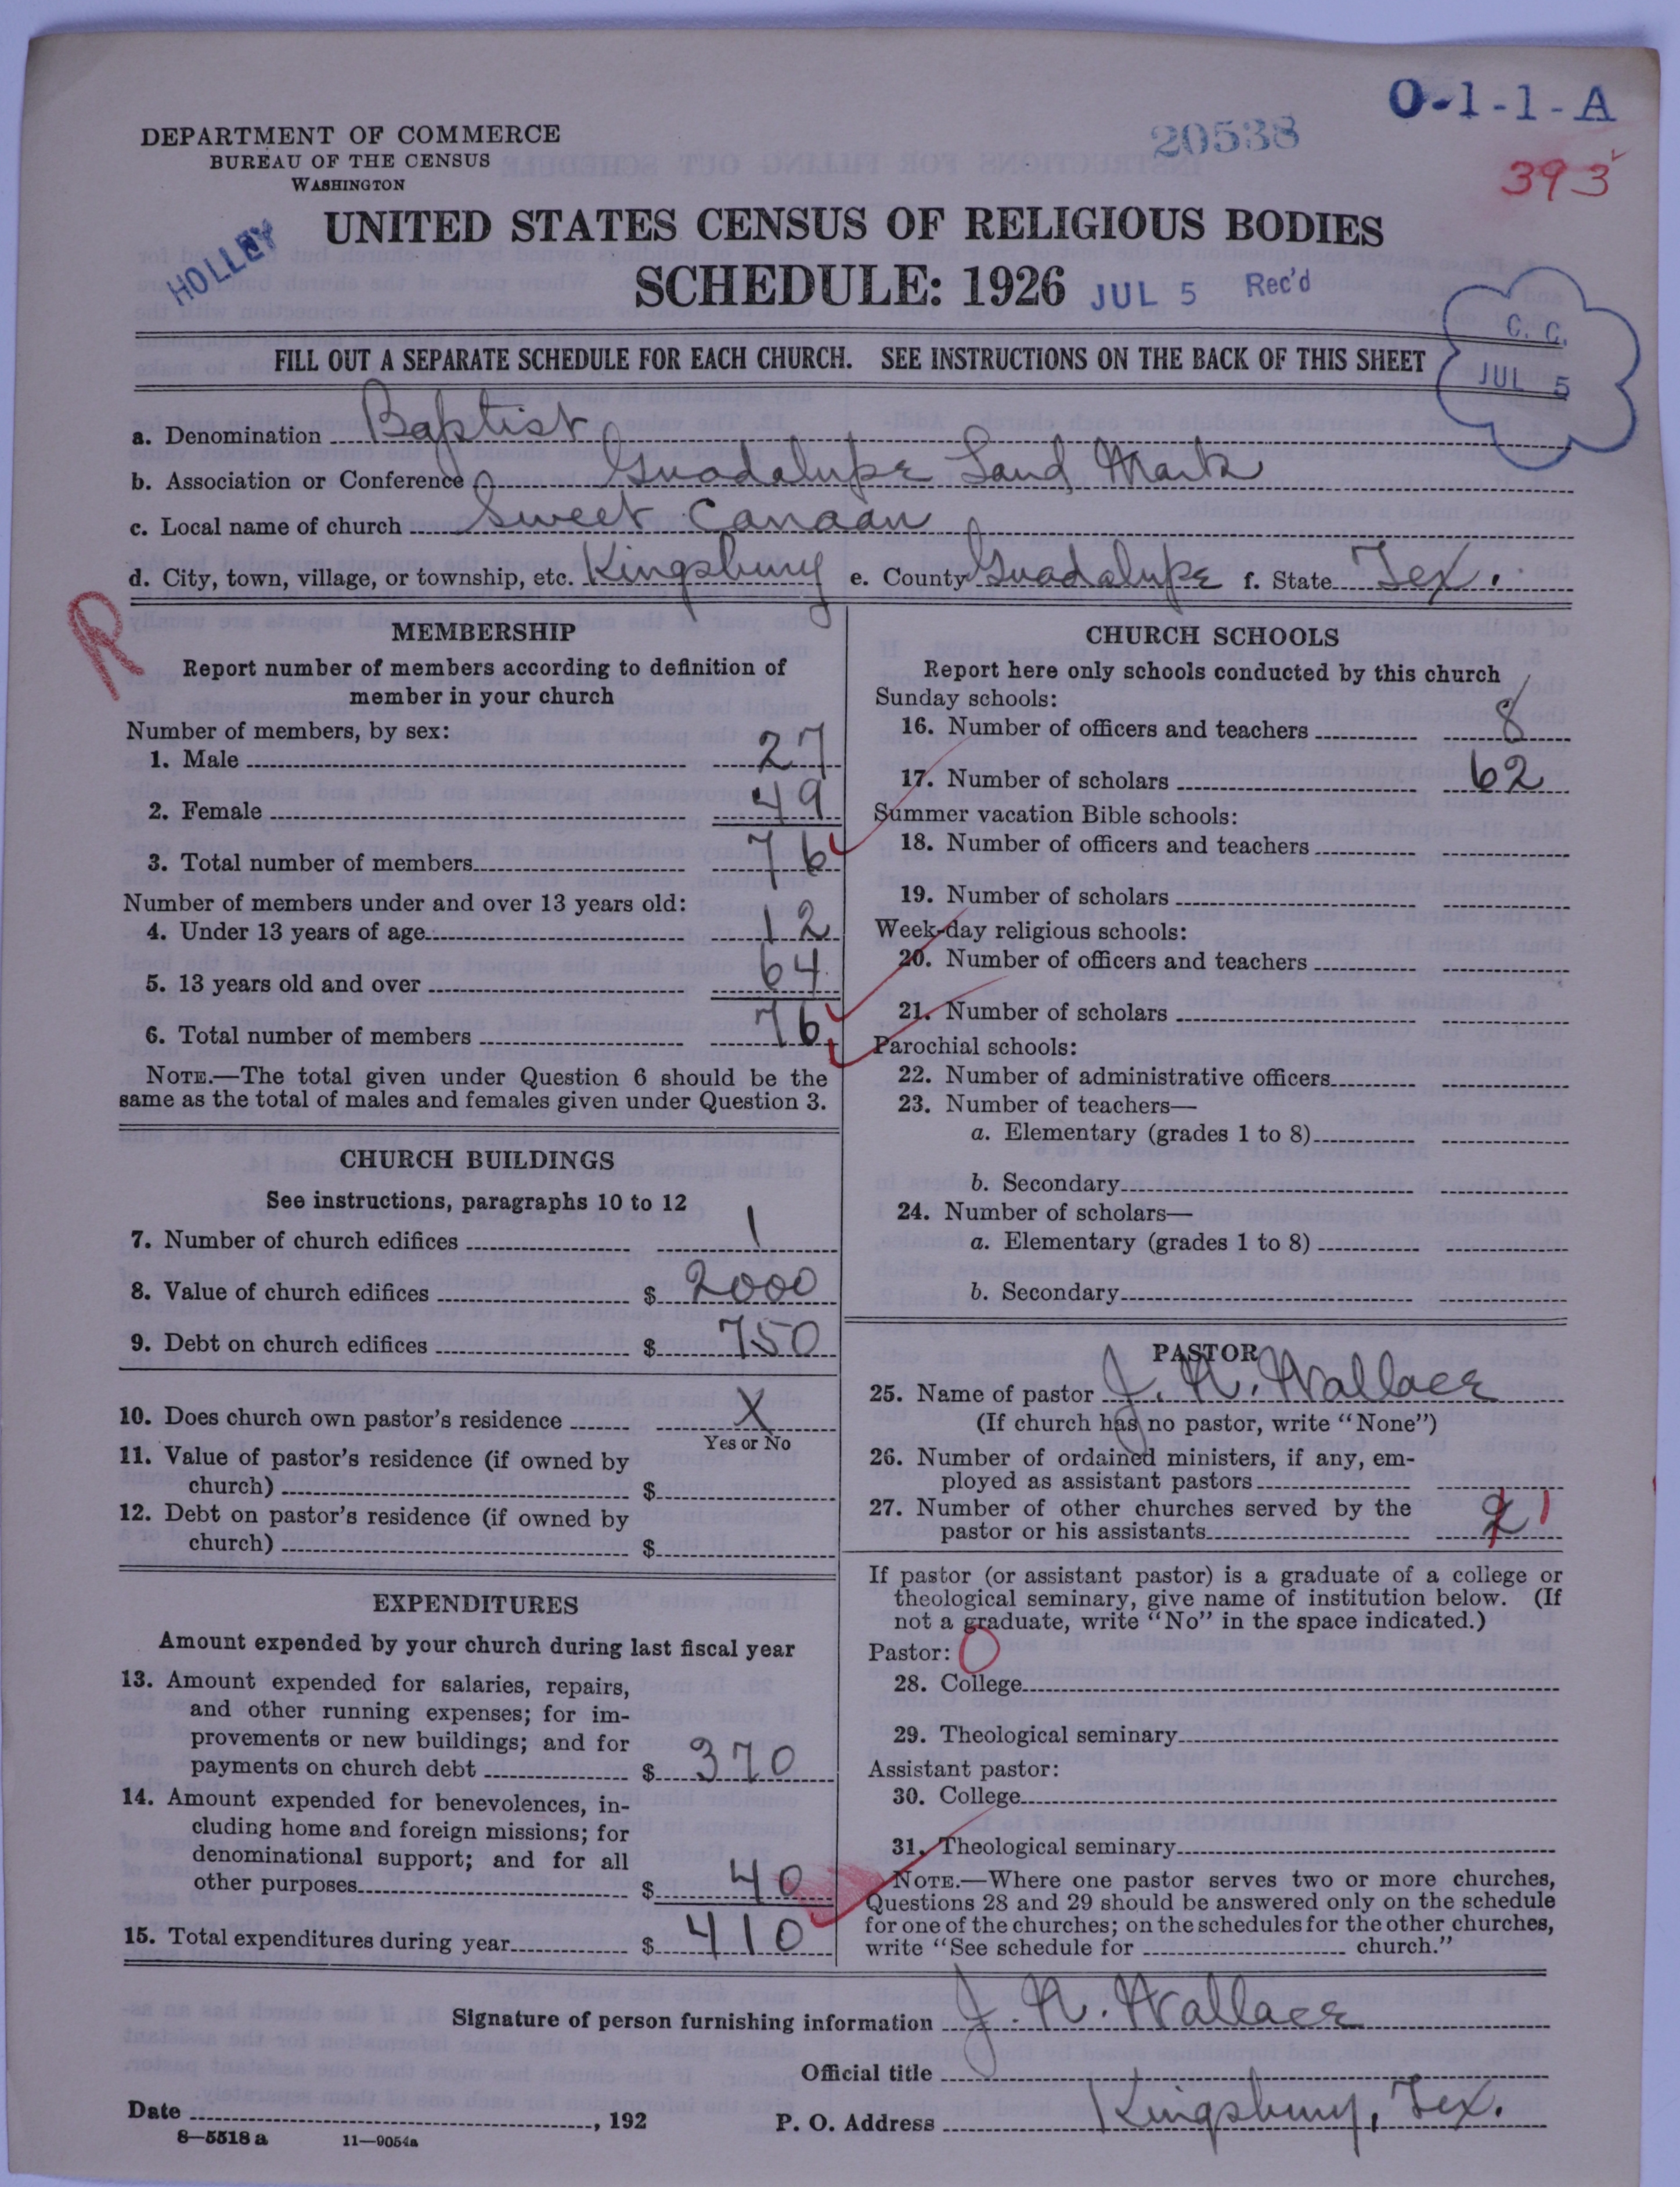 O-1-1-A
20538
393
DEPARTMENT OF COMMERCE
BUREAU OF THE CENSUS
WASHINGTON
HOLLEY
UNITED STATES CENSUS OF RELIGIOUS BODIES
SCHEDULE: 1926
JUL 5 Rec'd
C. C.
JUL 5
FILL OUT A SEPARATE SCHEDULE FOR EACH CHURCH. SEE INSTRUCTIONS ON THE BACK OF THIS SHEET
a. Denomination Baptist
b. Association or Conference Guadalupe Land Mark
c. Local name of church Sweet Canaan
d. City, town, village, or township, etc. Kingsbury e. County Guadalupe f. State Tex.
R
MEMBERSHIP
Report number of members according to definition of
member in your church
Number of members, by sex:
1. Male 27
2. Female 49
3. Total number of members 76
Number of members under and over 13 years old:
4. Under 13 years of age 12
5. 13 years old and over 64
6. Total number of members 76
NOTE.—The total given under Question 6 should be the
same as the total of males and females given under Question 3.
CHURCH BUILDINGS
See instructions, paragraphs 10 to 12
7. Number of church edifices 1
8. Value of church edifices $ 2000
9. Debt on church edifices $ 750
10. Does church own pastor's residence X
Yes or No
11. Value of pastor's residence (if owned by
church) $
12. Debt on pastor's residence (if owned by
church) $
EXPENDITURES
Amount expended by your church during last fiscal year
13. Amount expended for salaries, repairs,
and other running expenses; for im-
provements or new buildings; and for
payments on church debt $ 370
14. Amount expended for benevolences, in-
cluding home and foreign missions; for
denominational support; and for all
other purposes $ 40
15. Total expenditures during year $ 410
CHURCH SCHOOLS
Report here only schools conducted by this church
Sunday schools:
16. Number of officers and teachers 8
17. Number of scholars 62
Summer vacation Bible schools:
18. Number of officers and teachers
19. Number of scholars
Week-day religious schools:
20. Number of officers and teachers
21. Number of scholars
Parochial schools:
22. Number of administrative officers
23. Number of teachers—
a. Elementary (grades 1 to 8)
b. Secondary
24. Number of scholars—
a. Elementary (grades 1 to 8)
b. Secondary
PASTOR
25. Name of pastor J. N. Wallace
(If church has no pastor, write "None")
26. Number of ordained ministers, if any, em-
ployed as assistant pastors
27. Number of other churches served by the
pastor or his assistants 2 1
If pastor (or assistant pastor) is a graduate of a college or
theological seminary, give name of institution below. (If
not a graduate, write "No" in the space indicated.)
Pastor: O
28. College
29. Theological seminary
Assistant pastor:
30. College
31. Theological seminary
NOTE.—Where one pastor serves two or more churches,
Questions 28 and 29 should be answered only on the schedule
for one of the churches; on the schedules for the other churches,
write "See schedule for church."
Signature of person furnishing information J. N. Wallace
Official title
Date , 192 P. O. Address Kingsbury, Tex.
8—5518 a 11—9054a